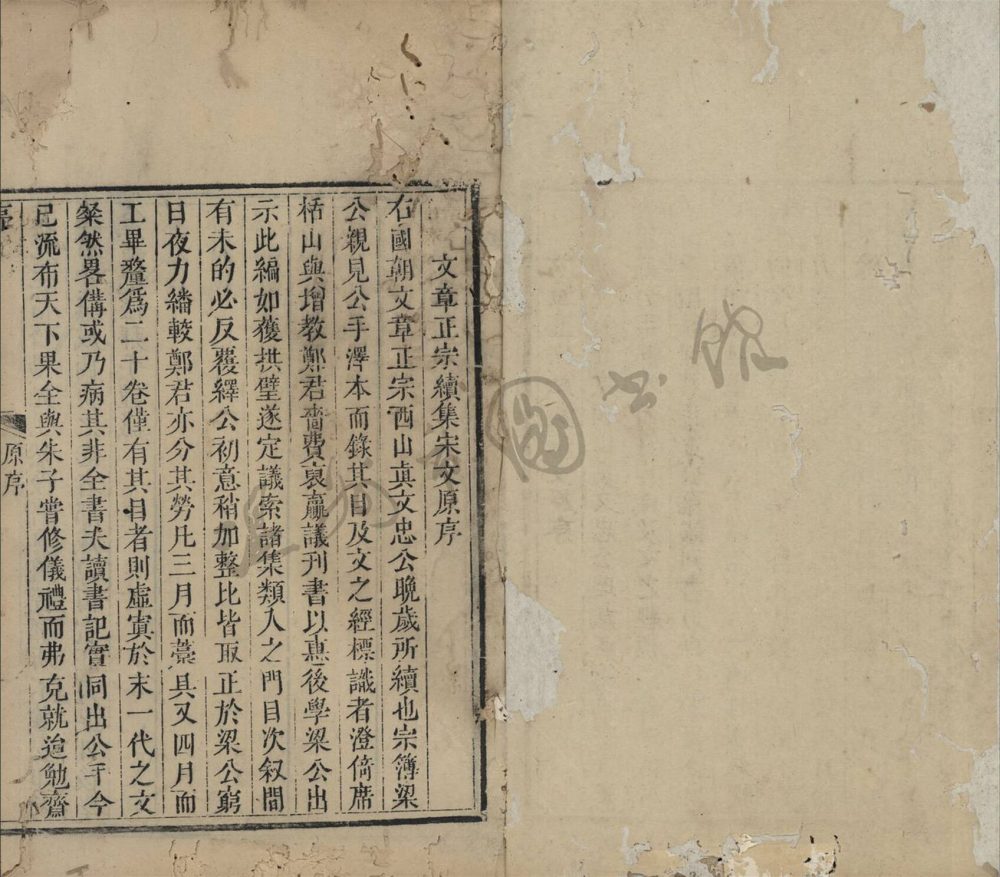 文章正宗續集宋文原序
右國朝文章正宗西山眞文忠公晚歲所續也宗簿梁
公親見公手澤本而錄其目及文之經標識者澄倚席
栝山與增教鄭君嗇費裒贏議刊書以惠後學梁公出
示此編如獲拱璧遂定議索諸集類入之門目次叙間
有未的必反覆繹公初意稍加整比皆取正於梁公窮
日夜力繙較鄭君亦分其勞凡三月而藁具又四月而
工畢釐爲二十卷僅有其目者則虛寘於末一代之文
粲然畧備或乃病其非全書夫讀書記實同出公手今
已流布天下果全與朱子嘗修儀禮而弗克就迨勉齋
原序
圖書館